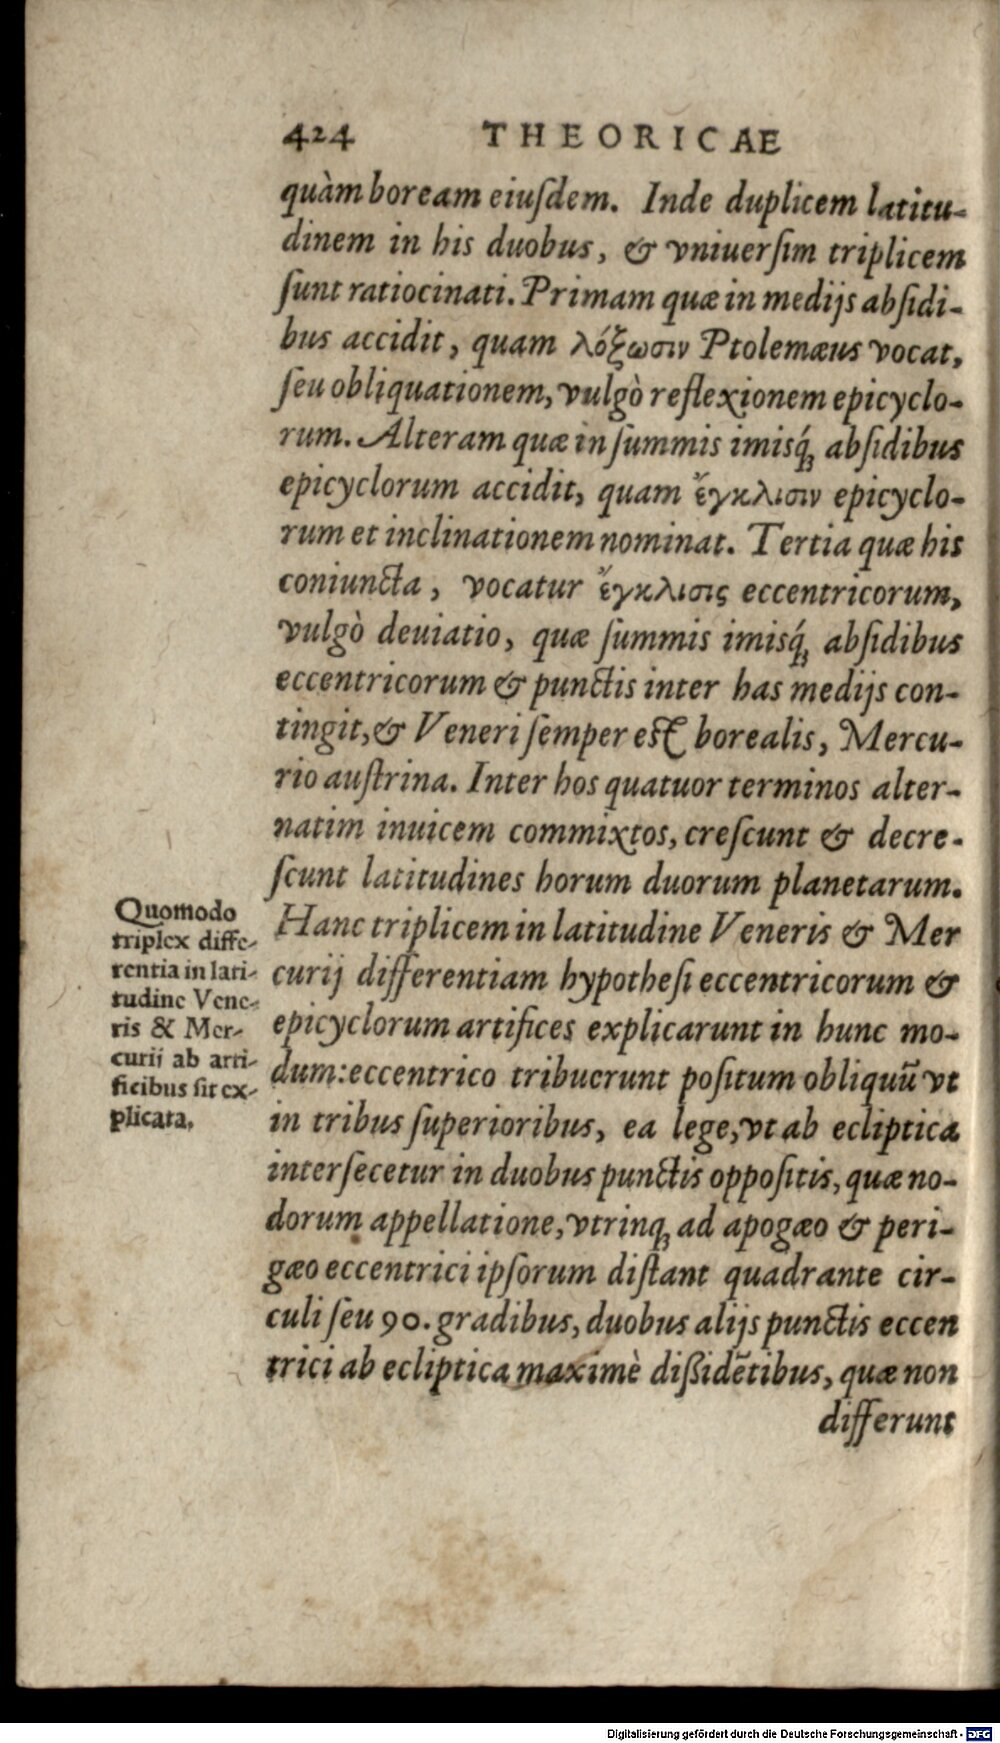 424 THEORICAE
quàm boream eiuſdem. Inde duplicem latitu-
dinem in his duobus, & vniuerſim triplicem
ſunt ratiocinati. Primam quæ in medijs abſidi-
bus accidit, quam λόξωσιν Ptolemæus vocat,
ſeu obliquationem, vulgò reflexionem epicyclo-
rum. Alteram quæ in ſummis imisq́; abſidibus
epicyclorum accidit, quam ἔγκλισιν epicyclo-
rum et inclinationem nominat. Tertia quæ his
coniuncta, vocatur ἔγκλισις eccentricorum,
vulgò deuiatio, quæ ſummis imisq́; abſidibus
eccentricorum & punctis inter has medijs con-
tingit, & Veneri ſemper eſt borealis, Mercu-
rio auſtrina. Inter hos quatuor terminos alter-
natim inuicem commixtos, creſcunt & decre-
ſcunt latitudines horum duorum planetarum.
Hanc triplicem in latitudine Veneris & Mer
curij differentiam hypotheſi eccentricorum &
epicyclorum artifices explicarunt in hunc mo-
dum: eccentrico tribuerunt poſitum obliquũ vt
in tribus ſuperioribus, ea lege, vt ab ecliptica
interſecetur in duobus punctis oppoſitis, quæ no-
dorum appellatione, vtrinq; ad apogæo & peri-
gæo eccentrici ipſorum diſtant quadrante cir-
culi ſeu 90. gradibus, duobus alijs punctis eccen
trici ab ecliptica maximè dißidẽtibus, quæ non
differunt
Quomodo
triplex diffe-
rentia in lati-
tudine Vene-
ris & Mer-
curij ab arti-
ficibus ſit ex-
plicata.
Digitalisierung gefördert durch die Deutsche Forschungsgemeinschaft - DFG